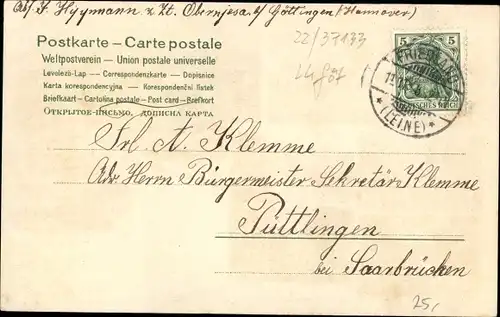 z. Zt. Obernjesa b/ Göttingen (Hannover)
22/37133
Postkarte – Carte postale
Weltpostverein – Union postale universelle
Levelező-Lap – Correspondenzkarte – Dopisnice
Karta korespondencyjna – Korespondenční listek
Briefkaart – Cartolina postale – Post card – Brefkort
ОТКРЫТОЕ ПИСЬМО, ДОПИСНА КАРТА
5 5
DEUTSCHES REICH
FRIEDLAND
* (LEINE) *
Frl. A. Klemme
Adr. Herrn Bürgermeister Sekretär Klemme
Püttlingen
bei Saarbrücken
25,